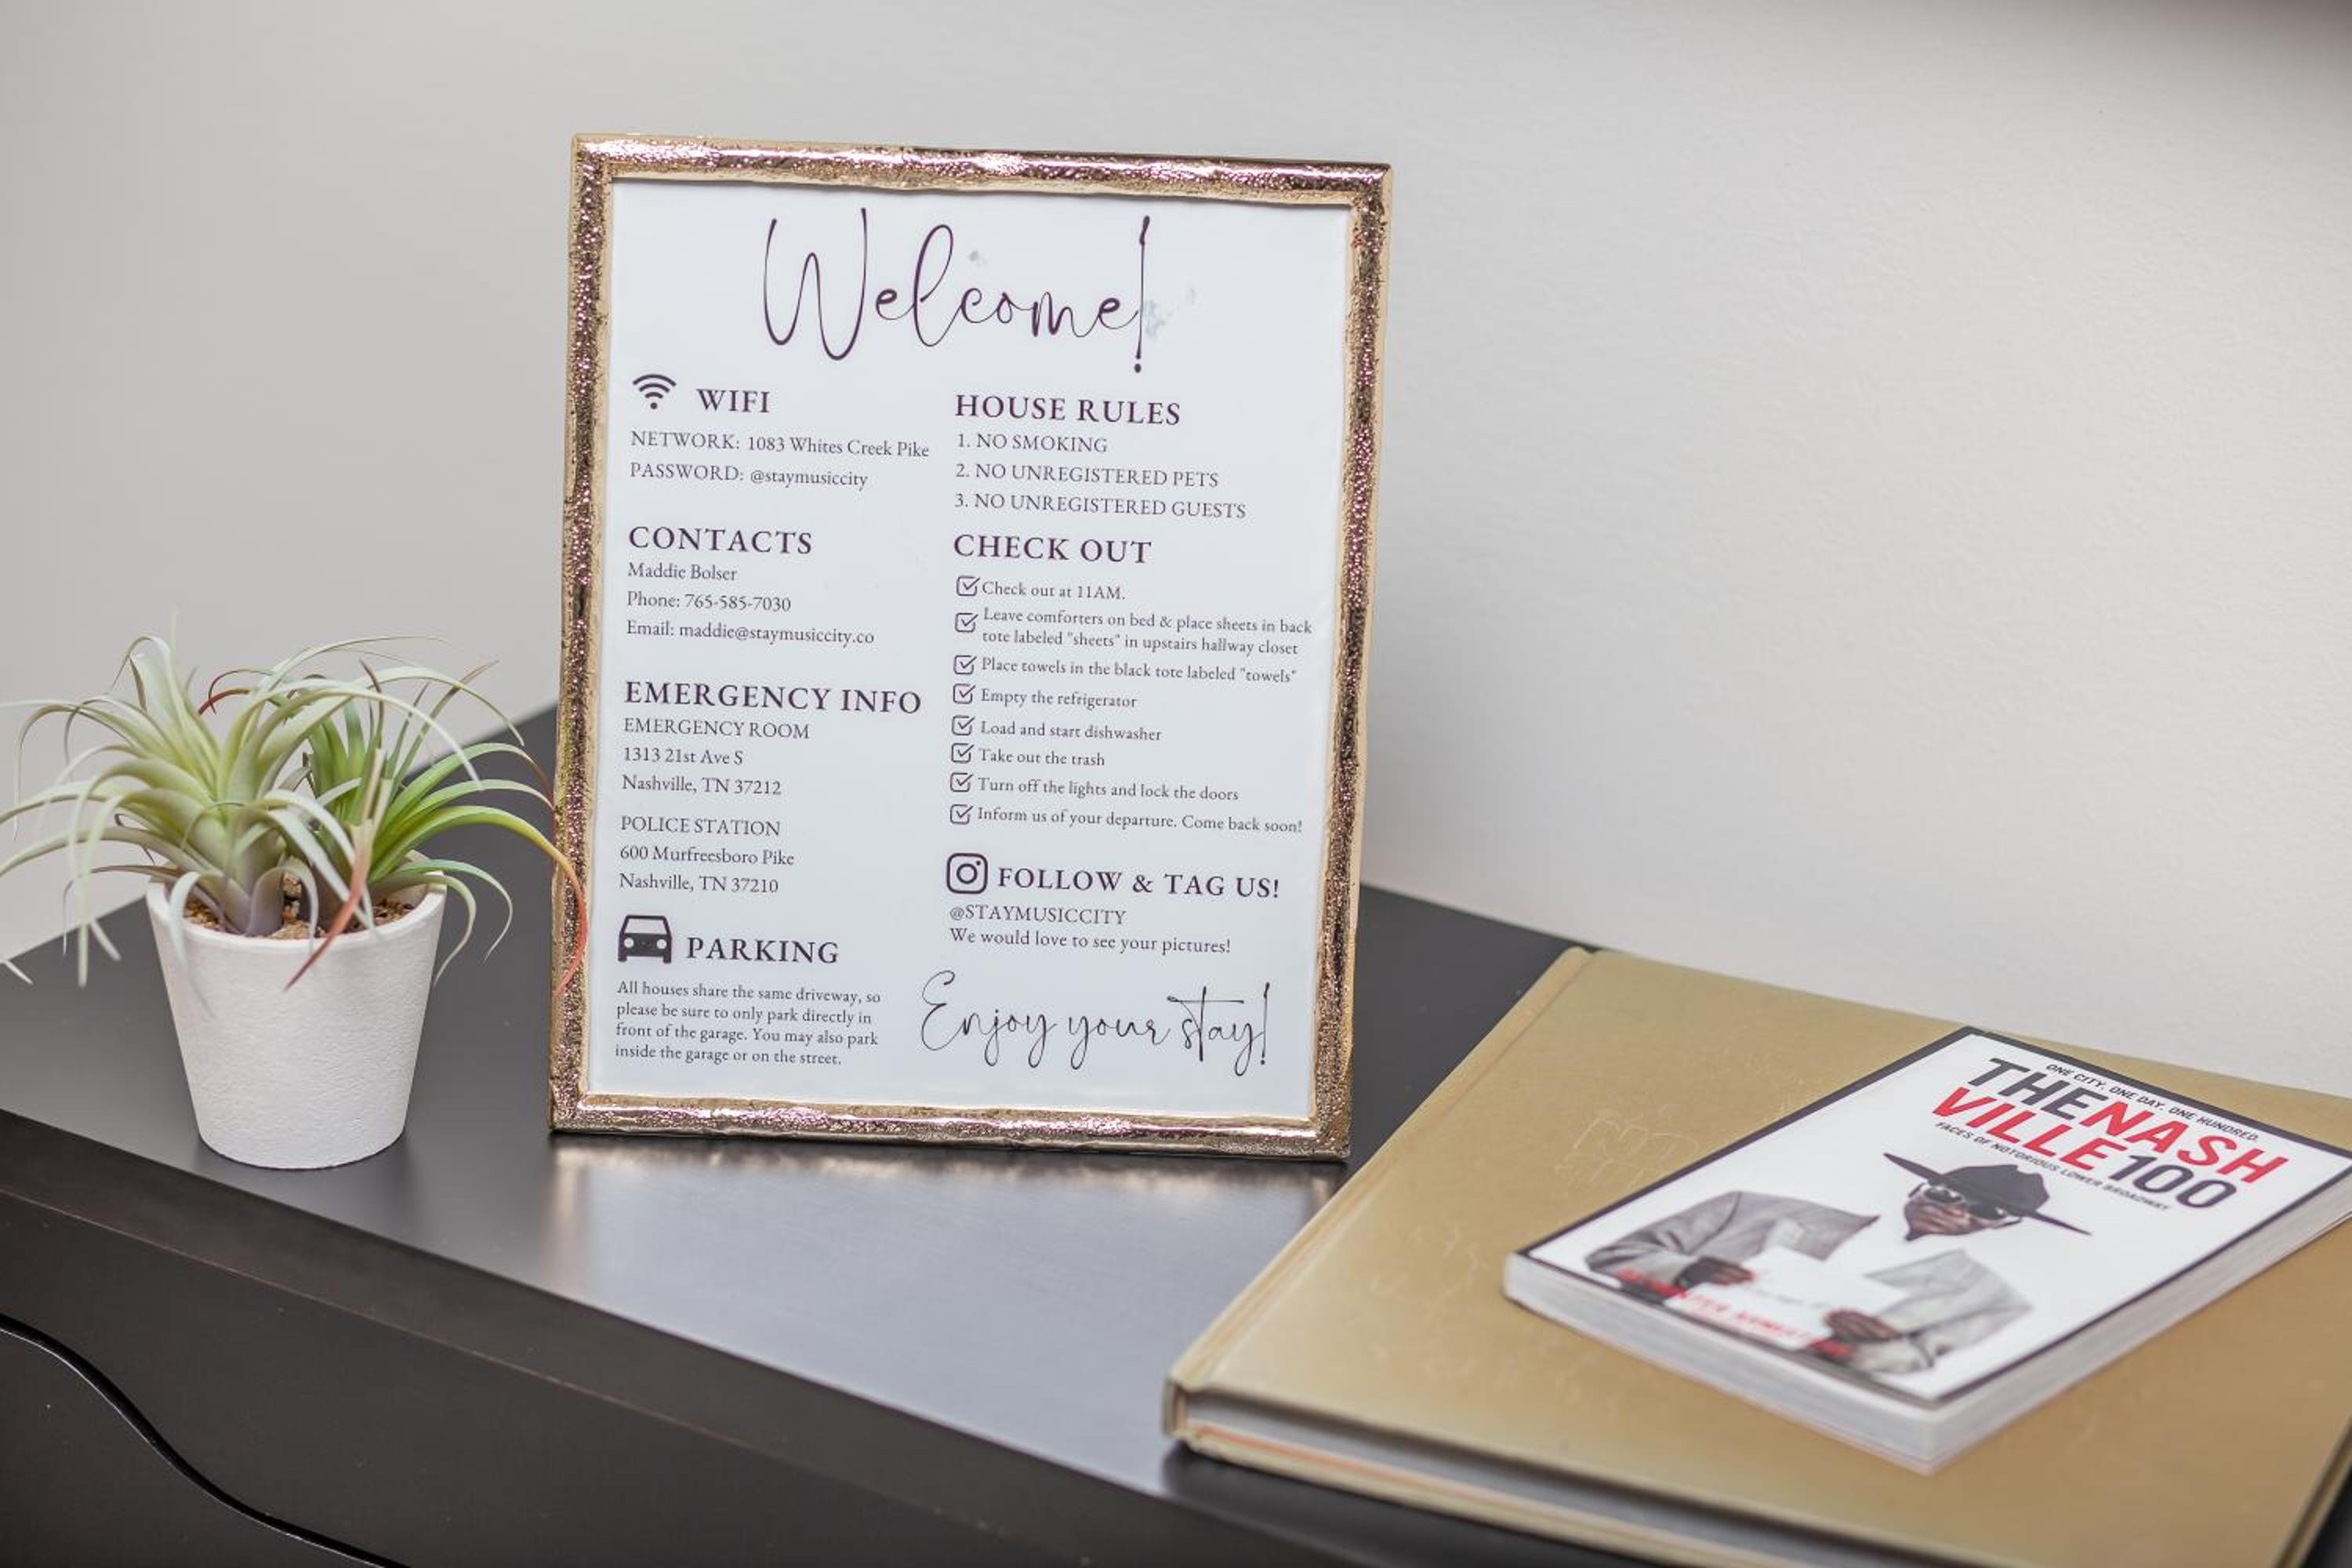 Welcome!
WIFI
NETWORK: 1083 Whites Creek Pike
PASSWORD: @staymusiccity
CONTACTS
Maddie Bolser
Phone: 765-585-7030
Email: maddie@staymusiccity.co
EMERGENCY INFO
EMERGENCY ROOM
1313 21st Ave S
Nashville, TN 37212
POLICE STATION
600 Murfreesboro Pike
Nashville, TN 37210
PARKING
All houses share the same driveway, so
please be sure to only park directly in
front of the garage. You may also park
inside the garage or on the street.
HOUSE RULES
1. NO SMOKING
2. NO UNREGISTERED PETS
3. NO UNREGISTERED GUESTS
CHECK OUT
Check out at 11AM.
Leave comforters on bed & place sheets in back
tote labeled "sheets" in upstairs hallway closet
Place towels in the black tote labeled "towels"
Empty the refrigerator
Load and start dishwasher
Take out the trash
Turn off the lights and lock the doors
Inform us of your departure. Come back soon!
FOLLOW & TAG US!
@STAYMUSICCITY
We would love to see your pictures!
Enjoy your stay!
ONE CITY. ONE DAY. ONE HUNDRED.
THENASH
VILLE100
FACES OF NOTORIOUS LOWER BROADWAY